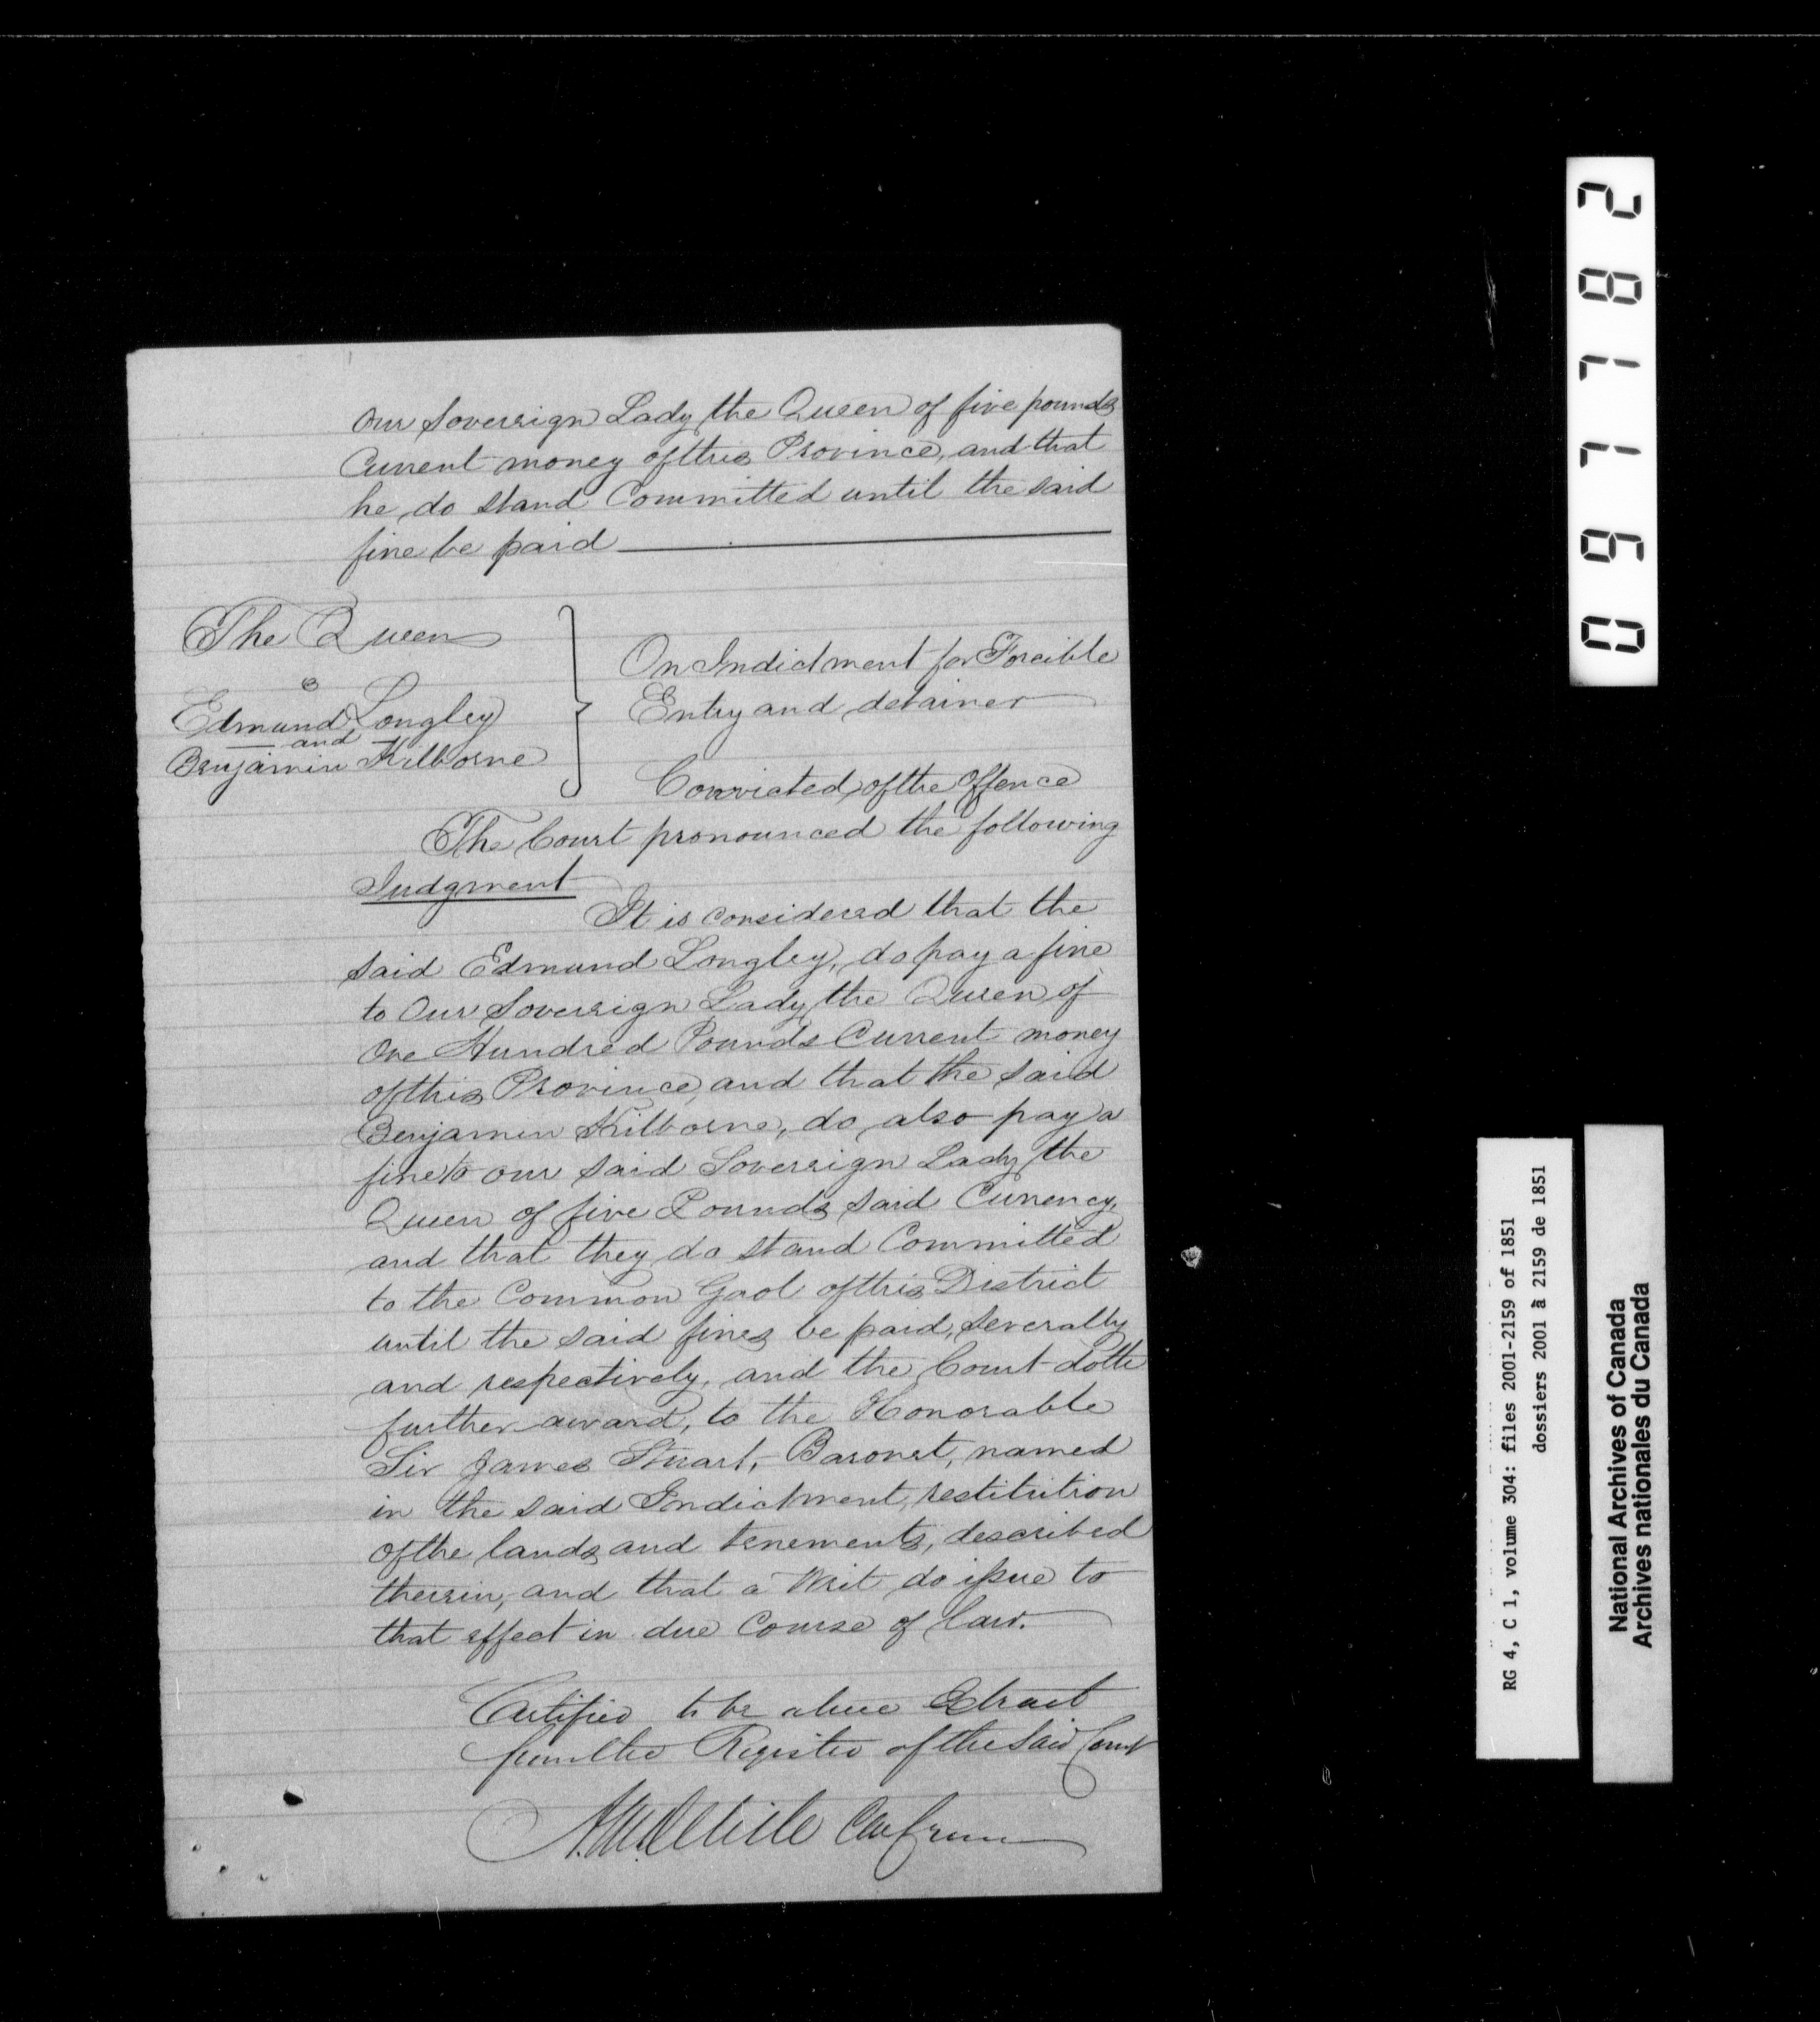 our Sovereign Lady the Queen of five pounds
Current money of this Province, and that
he do stand Committed until the said
fine be paid
The Queen
Edmund Longley
and
Benjamin Kilborne
On Indictment for Forcible
Entry and detainer
Convicted of the offence
The Court pronounced the following
Judgment
It is considered that the
said Edmund Longley, do pay a fine
to Our Sovereign Lady the Queen of
One Hundred Pounds Current money
of this Province, and that the said
Benjamin Kilborne, do also pay a
fine to our said Sovereign Lady the
Queen of five Pounds said Currency,
and that they do stand Committed
to the Common Gaol of this District
until the said fines be paid, severally
and respectively, and the Court doth
further award, to the Honorable
Sir James Stuart, Baronet, named
in the said Indictment, restitution
of the lands and tenements, described
therein, and that a Writ do issue to
that effect in due Course of Law.
Certified to be a true Extract
from the Register of the Said Court
097782
RG 4, C 1, volume 304: files 2001-2159 of 1851
dossiers 2001 à 2159 de 1851
National Archives of Canada
Archives nationales du Canada